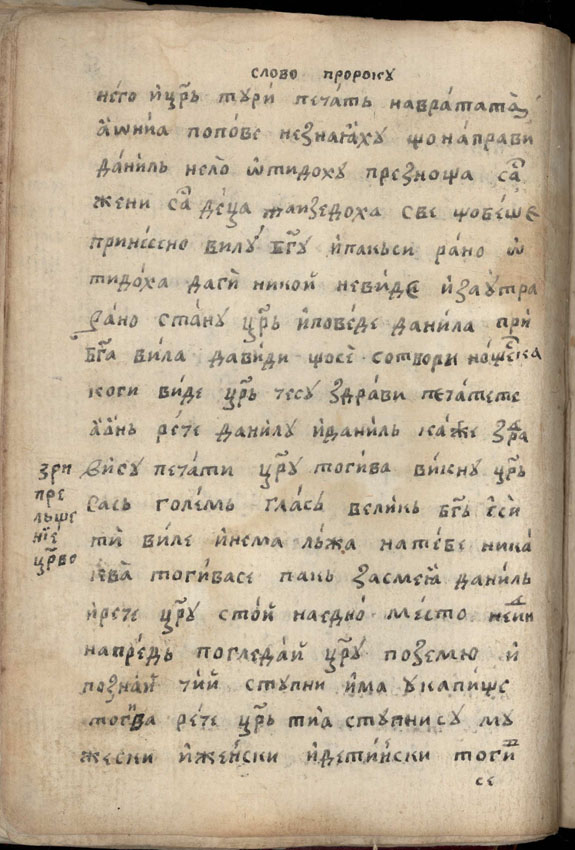 слово пророку
него и҆цр҃ь тури печать навратата
а҆ѡниꙗ попове незнаꙗ҆ху що направи
данїиль нело ѿтидоху презноща са
жени са деца таизедоха све щобеше
принесено вилу̀ бг҃у и҆пакьси рано ѿ
тидоха даги никой невиде и҆заꙋтра
рано стану цр҃ь и҆поведе данила при
бг҃а вила давиди щосе сотвори нощеска
коги виде цр҃ь чесу здрави печатете
рече данилу и҆даниль каже
вису печати цр҃у тогива викну цр҃ь
сась големь глась великь бг҃ь є҆си
ти виле и҆нема льжа натебе ника
ква тогивасе пакь засмеꙗ даниль
и҆рече цр҃у стой наедно место
напредь погледай цр҃у поземю и҆
познай чїй ступни и҆ма укапище
тогива рече цр҃ь тиꙗ ступнису му
жески и҆женски и҆детински тоги
се
зри
пре
льще
нїе
цр҃во